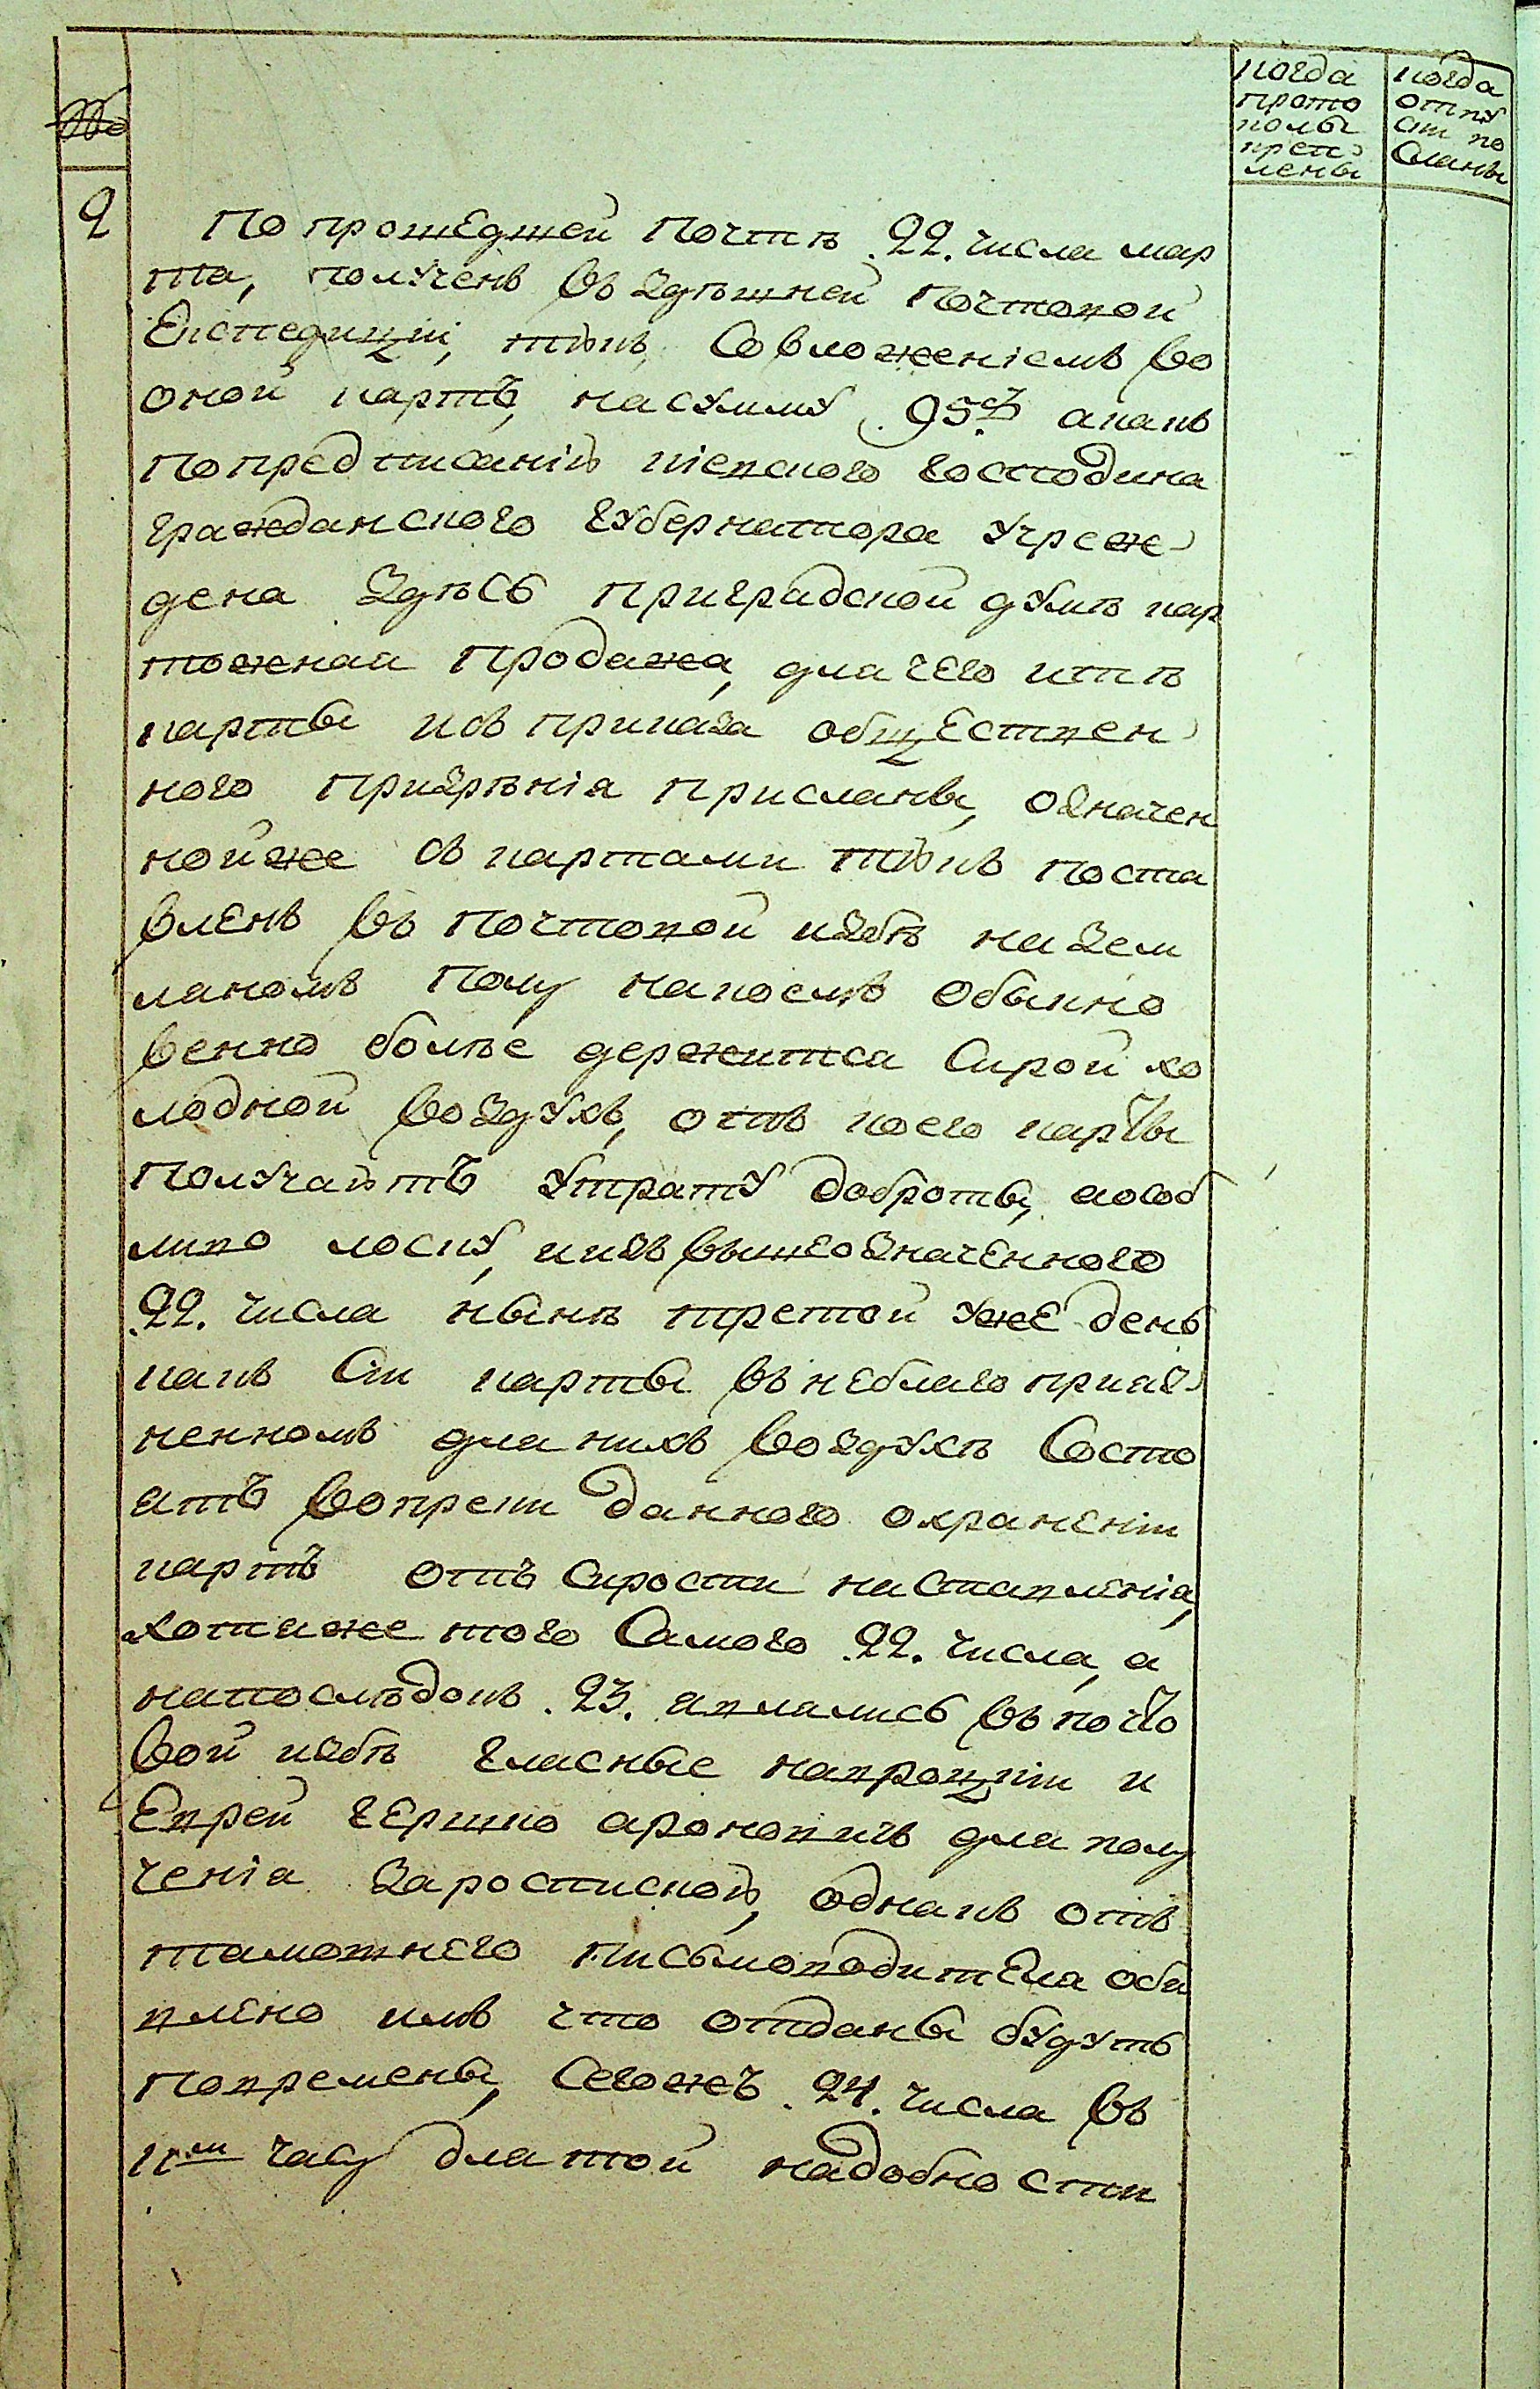 №
когда
прото
колы
креп
лены
когда
отпу
ски по
сланы
2
По прошедшей почтѣ 22. числа мар
та, полученъ въ здѣшней почтовой
Експедиціи, тюкъ, Совложеніемъ во
оной картъ, насумму 95р акакъ
попредписанію кіевского господина
гражданского губернатора учреж
дена здѣсь приградской думѣ кар
тожная продажа, для чего итѣ
карты изъ приказа обществен
ного призрѣнія присланы, означен
нойже съ картами тюкъ поста
вленъ въ почтовой избѣ на зем
ляномъ полу накоемъ обыкно
венно болѣе держится сирой хо
лодной воздухъ, отъ коего карты
получаютъ утрату доброты, аособ
ливо лоску, ииzъ вышеозначенного
22. числа нынѣ третой уже день
какъ Сіи карты въ неблагопріяз
ненномъ для нихъ воздухѣ Состо
ятъ вопреки данного охраненіи
картъ отъ сирости наставленія,
хотяже того Самого 22. числа, а
напослѣдокъ 23. являлись въ почто
вой избѣ гласные навроцкіи и
Еврей гершко ароновичъ для полу
ченія заростиской, однакъ отъ
тамошнего письмоводителя объя
влено имъ что отданы будутъ
повремены, Сегожъ 24. числа въ
11м часу для той надобности